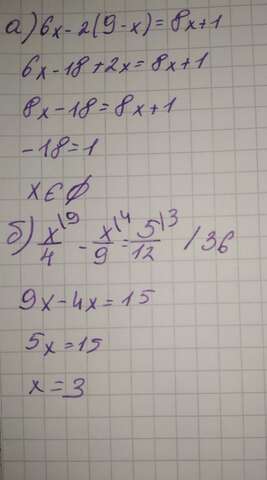 а) 6x-2(9-x)=8x+1
6x-18+2x=8x+1
8x-18=8x+1
-18=1
x∈∅
б) x/4 \9 - x/9 \4 = 5/12 \3 / 36
9x-4x=15
5x=15
x=3